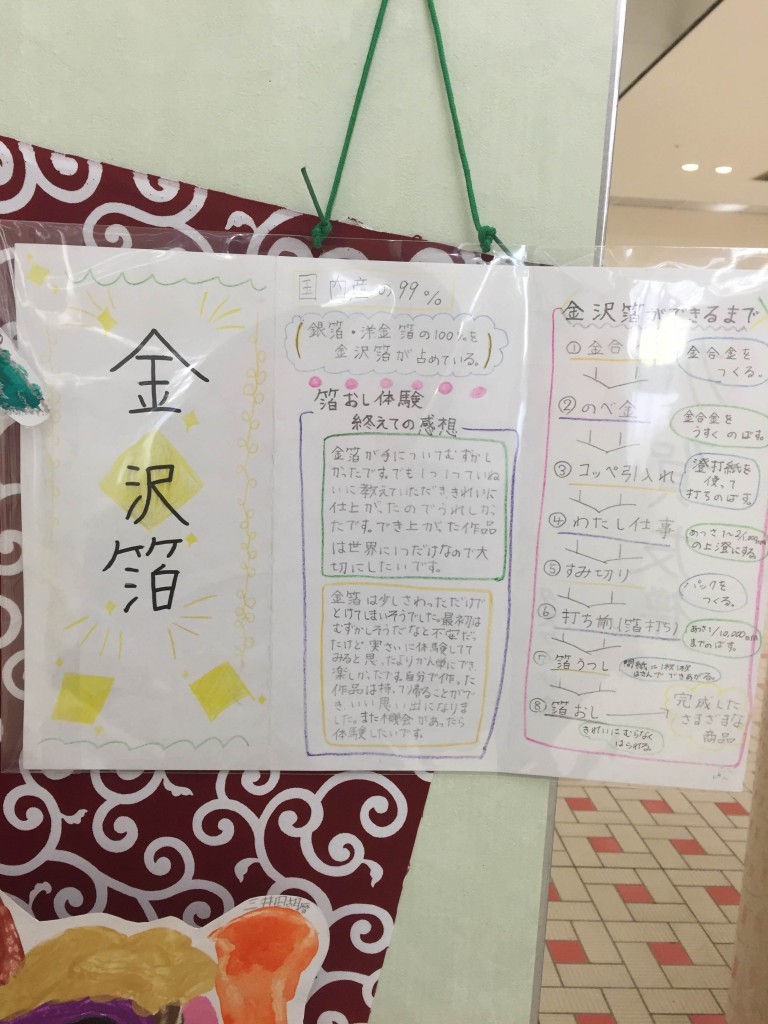 金沢箔
国内産の99%
銀箔・洋金箔の100%を
金沢箔が占めている。
箔おし体験
終えての感想
金箔が手についてむずかし
かったです。でも1つ1つていね
いに教えていただききれいに
仕上がったのでうれしかっ
たです。でき上がった作品
は世界に1つだけなので大
切にしたいです。
金箔は少しさわっただけで
とけてしまいそうでした。最初は
むずかしそうだなと不安だっ
たけど実さいに体験してて
みると思ったよりか人単にでき、
楽しかったです。自分で作った
作品は持って帰ることがで
き、いい思い出になりま
した。また木機会があったら
体験したいです。
金沢箔ができるまで
①金合
金合金を
つくる。
②のべ金
金合金を
うすくのばす。
③コッペ引入れ
澄打紙を
使って
打ちのばす。
④わたし仕事
の上澄にする。
⑤すみ切り
パックを
つくる。
⑥打ち前(箔打ち)
あつさ1/10,000mm
までのばす。
⑦箔うつし
間紙に1枚1枚
はさんでできあがる。
⑧箔おし
きれいにむらなく
はられる。
完成した
さまざまな
商品